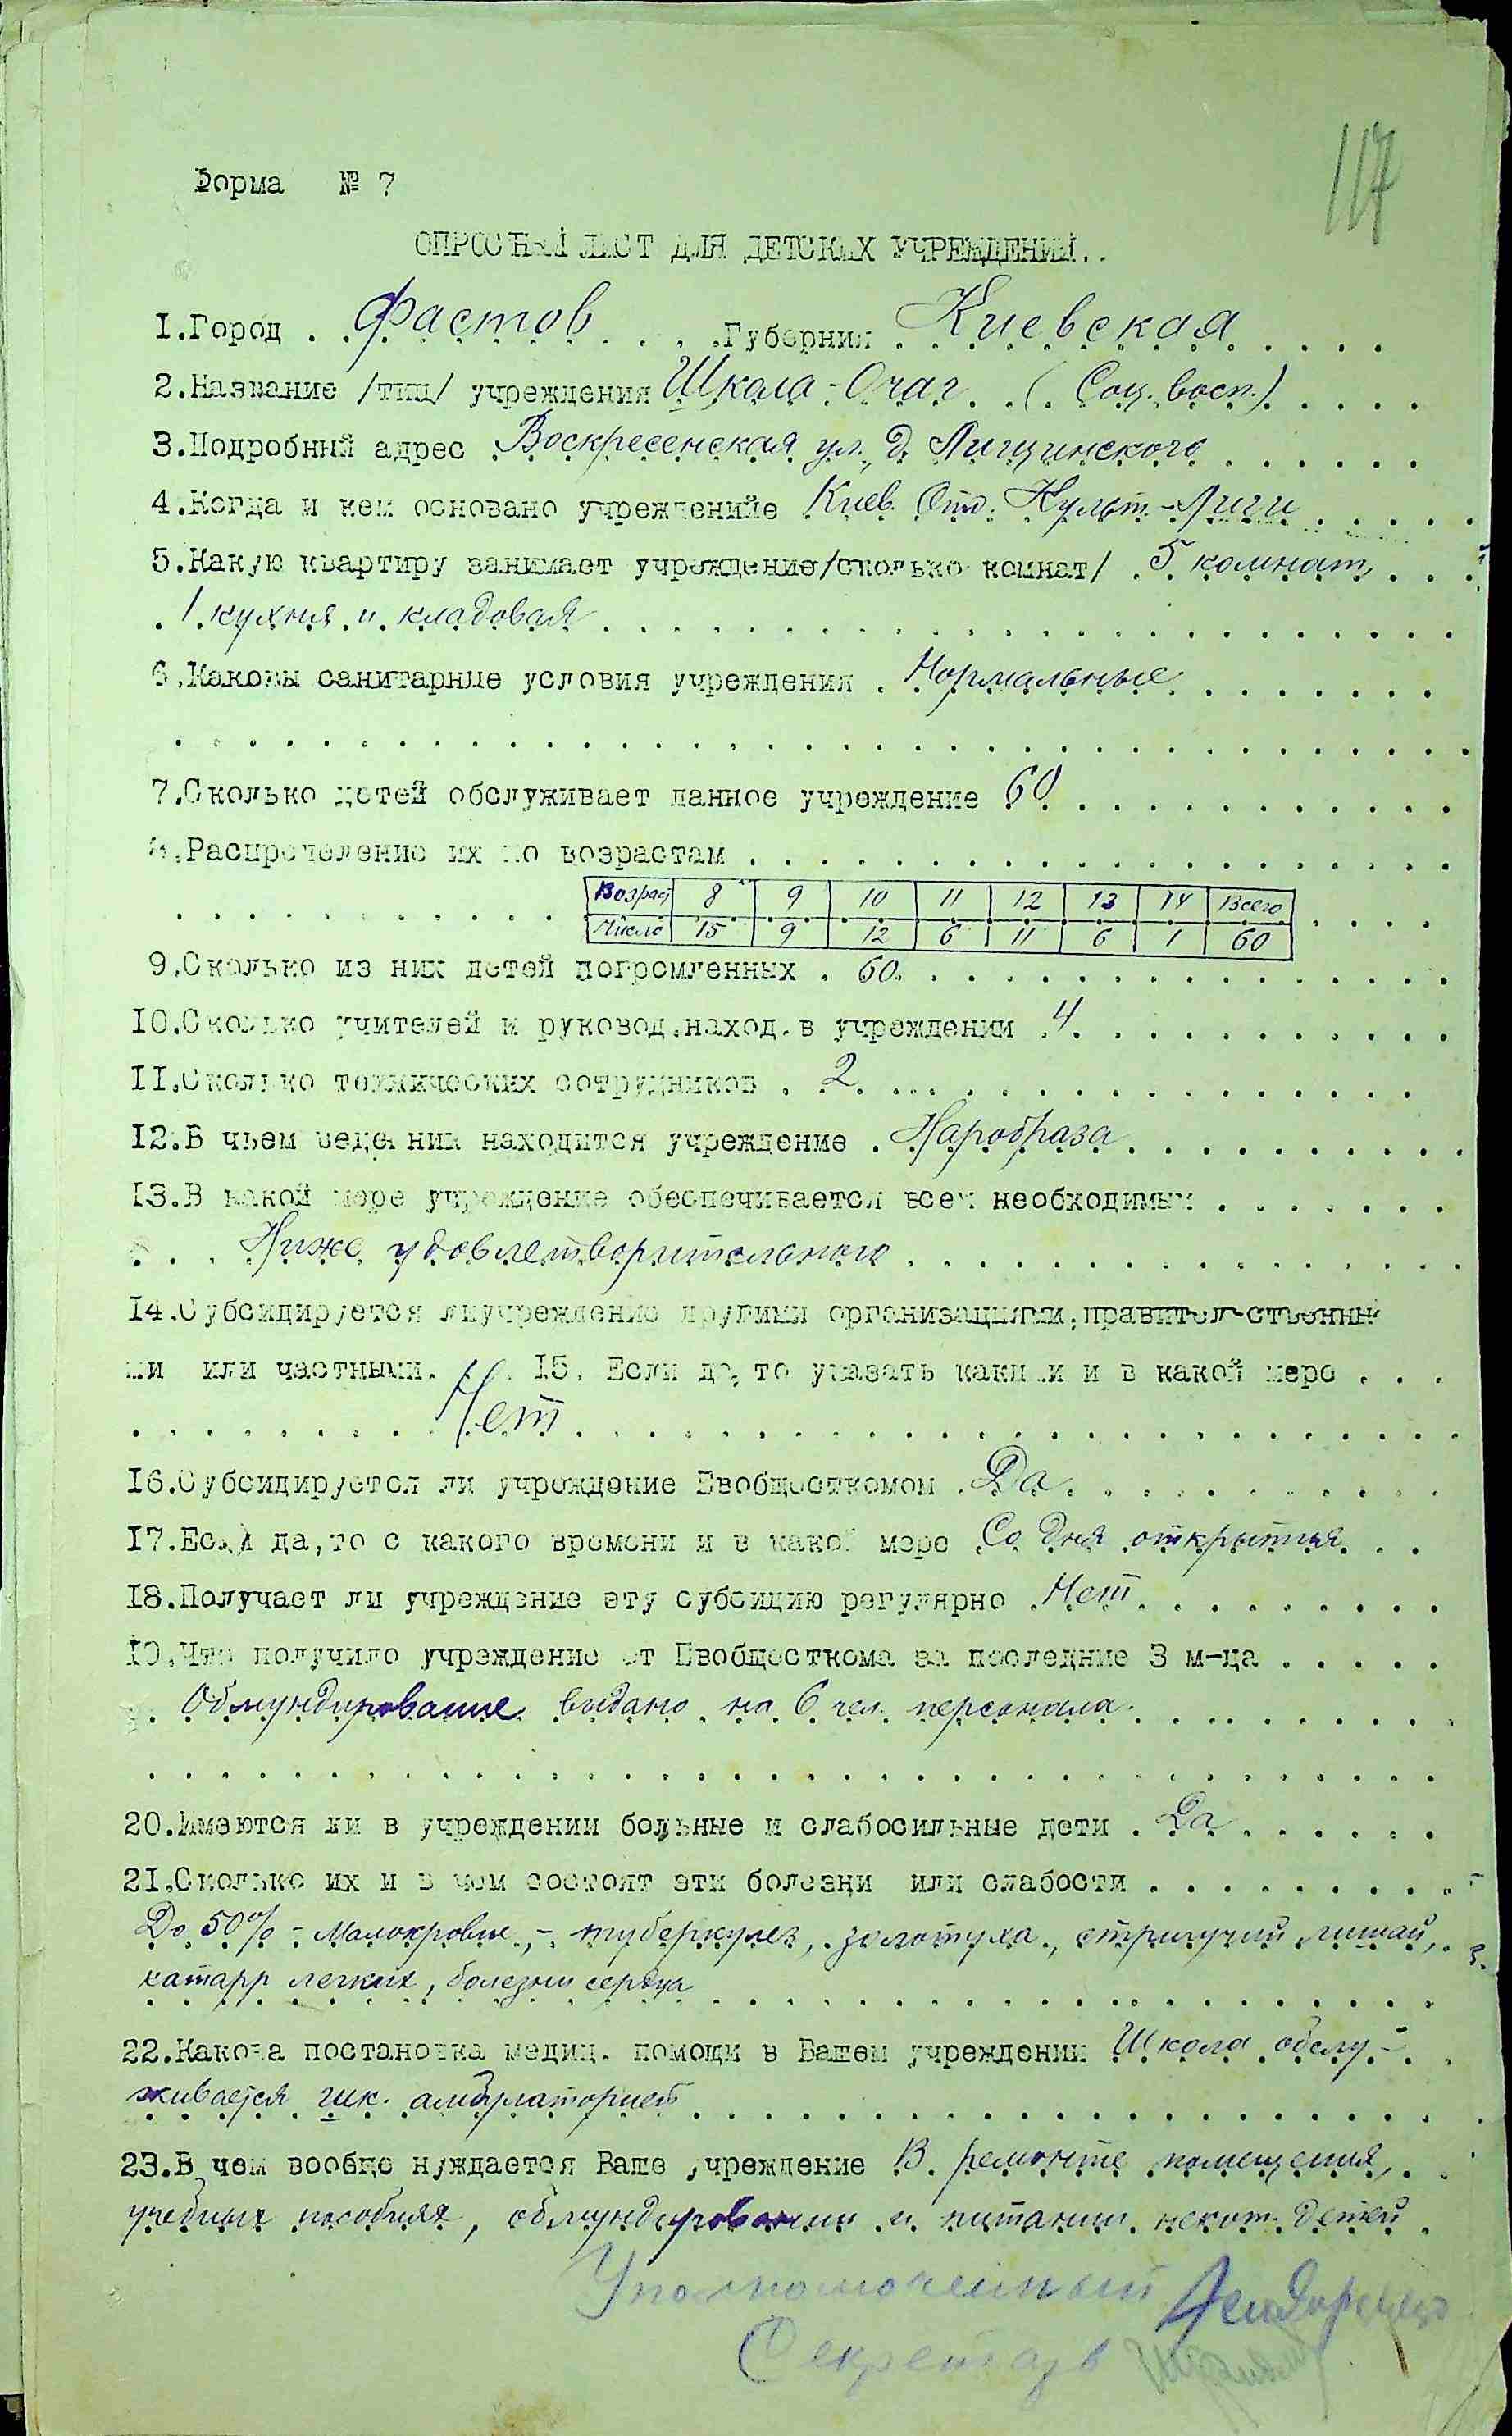 117
Форма № 7
ОПРОСНЫЙ ЛИСТ ДЛЯ ДЕТСКИХ УЧРЕЖДЕНИЙ..
I.Город . . Фастов . . . .Губерния . Киевская . . . .
2.Название /тип/ учреждения Школа-Очаг . . (. Соц. восп.) . . . .
3.Подробный адрес Воскресенская ул., д. Лищинского . . . . . .
4.Когда и кем основано учреждениие Киев. Отд. Культ.-Лиги . . . . .
5.Какую квартиру занимает учреждение/сколько комнат/ . 5 комнат, . . .
. 1 кухня и кладовая . . . . . . . . . . . . . . . . . . . . . . .
6.Каковы санитарные условия учреждения . Нормальные . . . . . . .
. . . . . . . . . . . . . . . . . . . . . . . . . . . . . . . . . . .
7.Сколько детей обслуживает данное учреждение 60 . . . . . . . . . . .
8.Распределение их по возрастам . . . . . . . . . . . . . . . . . . . .
Возраст 8 9 10 11 12 13 14 Всего
Число 15 9 12 6 11 6 1 60
9.Сколько из них детей погромленных . 60 . . . . . . . . . . . . . . .
I0.Сколько учителей и руковод.наход.в учреждении 4 . . . . . . . . . .
II.Сколько технических сотрудников . 2 . . . . . . . . . . . . . . . .
I2.В чьем ведении находится учреждение . Наробраза . . . . . . . . . .
I3.В какой мере учреждение обеспечивается всем необходимым . . . . . . .
. . . Ниже удовлетворительного . . . . . . . . . . . . . . . .
I4.Субсидируется лиучреждение другими организациями,правительственны
ми или частными. . . I5. Если да, то указать какими и в какой мере . . .
. . . . . . . . Нет . . . . . . . . . . . . . . . . . . . . . . . .
I6.Субсидируется ли учреждение Евобщесткомом . Да . . . . . . . . . . .
I7.Если да,то с какого времени и в какой мере Со дня открытия . . .
I8.Получает ли учреждение эту субсидию регулярно . Нет . . . . . . . . .
I9.Что получило учреждение от Евобщесткома за последние 3 м-ца . . . . .
. Обмундирование выдано на 6 чел. персонала . . . . . . . . . .
. . . . . . . . . . . . . . . . . . . . . . . . . . . . . . . . . . .
20.Имеются ли в учреждении больные и слабосильные дети . Да . . . . . .
21.Сколько их и в чем состоят эти болезни или слабости . . . . . . . . .
До 50% - Малокровие, - туберкулез, золотуха, стригучий лишай,
катарр легких, болезни сердца . . . . . . . . . . . . . . . . . . . .
22.Какова постановка медиц. помощи в Вашем учреждении Школа обслу- .
живается шк. амбулаторией . . . . . . . . . . . . . . . . . . . . .
23.В чем вообще нуждается Ваше учреждение В ремонте помещения,
учебных пособиях, обмундировании и питании некот. детей
Уполномоченный
Секретарь